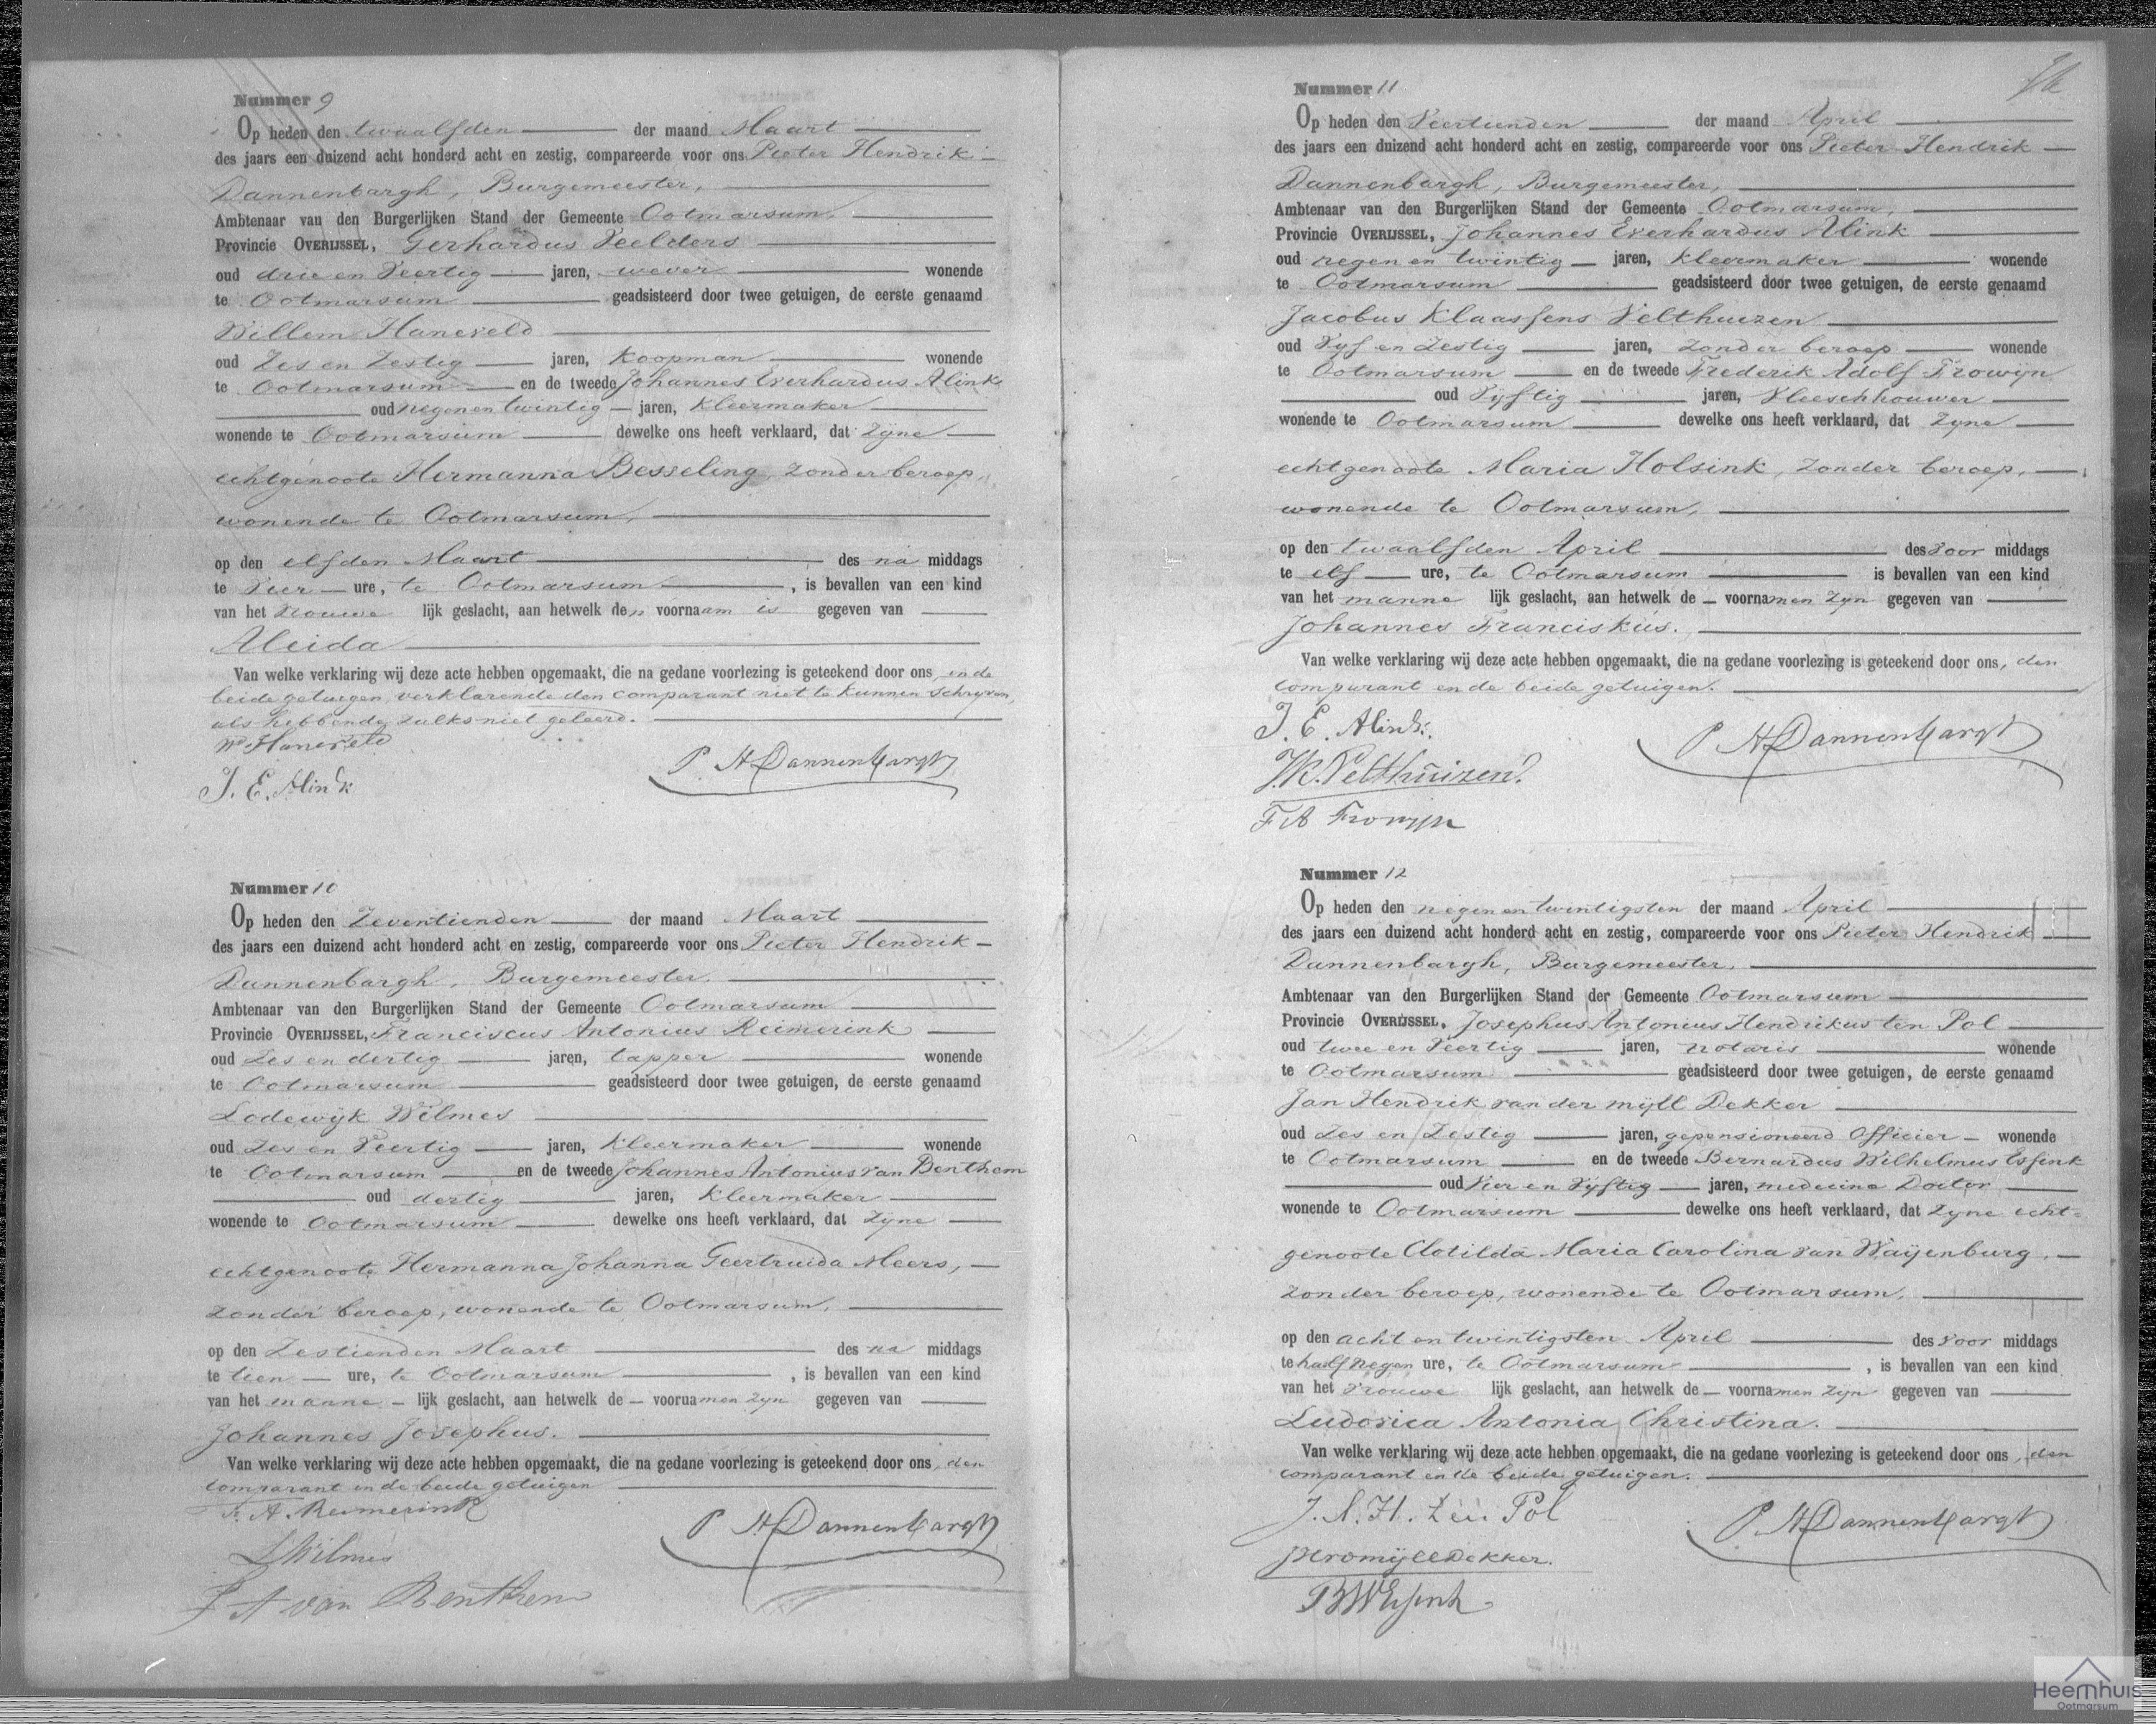 Nummer 9
Op heden den twaalfden der maand Maart
des jaars een duizend acht honderd acht en zestig, compareerde voor ons Pieter Hendrik
Dannenbargh, Burgemeester,
Ambtenaar van den Burgerlijken Stand der Gemeente Ootmarsum,
Provincie OVERIJSSEL, Gerhardus Veelders
oud drie en Veertig jaren, wever wonende
te Ootmarsum geadsisteerd door twee getuigen, de eerste genaamd
Willem Haneveld
oud Zes en Zestig jaren, Koopman wonende
te Ootmarsum en de tweede Johannes Everhardus Alink
oud negen en twintig jaren, Kleermaker
wonende te Ootmarsum dewelke ons heeft verklaard, dat Zyne
echtgenoote Hermanna Besseling, zonder beroep,
wonende te Ootmarsum,
op den elfden Maart des na middags
te Vier ure, te Ootmarsum, is bevallen van een kind
van het Vrouwe lijk geslacht, aan hetwelk den voornaam is gegeven van
Aleida
Van welke verklaring wij deze acte hebben opgemaakt, die na gedane voorlezing is geteekend door ons en de
beide getuigen, verklarende den comparant niet te kunnen schryven,
als hebbende zulks niet geleerd.
Wm Haneveld
P H Dannenbargh
J. E. Alink
Nummer 10
Op heden den Zeventienden der maand Maart
des jaars een duizend acht honderd acht en zestig, compareerde voor ons Pieter Hendrik
Dannenbargh, Burgemeester,
Ambtenaar van den Burgerlijken Stand der Gemeente Ootmarsum
Provincie OVERIJSSEL, Franciscus Antonius Reimerink
oud Zes en dertig jaren, tapper wonende
te Ootmarsum geadsisteerd door twee getuigen, de eerste genaamd
Lodewijk Wilmes
oud Zes en Veertig jaren, Kleermaker wonende
te Ootmarsum en de tweede Johannes Antonius van Benthem
oud dertig jaren, Kleermaker
wonende te Ootmarsum dewelke ons heeft verklaard, dat Zyne
echtgenoote Hermanna Johanna Geertruida Meers,
zonder beroep, wonende te Ootmarsum,
op den Zestienden Maart des na middags
te tien ure, te Ootmarsum, is bevallen van een kind
van het manne lijk geslacht, aan hetwelk de voornamen zyn gegeven van
Johannes Josephus.
Van welke verklaring wij deze acte hebben opgemaakt, die na gedane voorlezing is geteekend door ons, den
comparant en de beide getuigen
F. A. Reimerink
P H Dannenbargh
L Wilmes
J A van Benthem
Nummer 11
Op heden den Veertienden der maand April
des jaars een duizend acht honderd acht en zestig, compareerde voor ons Pieter Hendrik
Dannenbargh, Burgemeester,
Ambtenaar van den Burgerlijken Stand der Gemeente Ootmarsum,
Provincie OVERIJSSEL, Johannes Everhardus Alink
oud negen en twintig jaren, Kleermaker wonende
te Ootmarsum geadsisteerd door twee getuigen, de eerste genaamd
Jacobus Klaassens Velthuizen
oud Vyf en Zestig jaren, zonder beroep wonende
te Ootmarsum en de tweede Frederik Adolf Frowyn
oud Vyftig jaren, Vleeschhouwer
wonende te Ootmarsum dewelke ons heeft verklaard, dat Zyne
echtgenoote Maria Holsink, zonder beroep,
wonende te Ootmarsum,
op den twaalfden April des voor middags
te elf ure, te Ootmarsum is bevallen van een kind
van het manne lijk geslacht, aan hetwelk de voornamen zyn gegeven van
Johannes Franciskus.
Van welke verklaring wij deze acte hebben opgemaakt, die na gedane voorlezing is geteekend door ons, den
comparant en de beide getuigen.
J. E. Alink.
P H Dannenbargh
J.K. Velthuizen
F A Frowyn
Nummer 12
Op heden den negen en twintigsten der maand April
des jaars een duizend acht honderd acht en zestig, compareerde voor ons Pieter Hendrik
Dannenbargh, Burgemeester,
Ambtenaar van den Burgerlijken Stand der Gemeente Ootmarsum
Provincie OVERIJSSEL, Josephus Antonius Hendrikus ten Pol
oud twee en Veertig jaren, notaris wonende
te Ootmarsum geadsisteerd door twee getuigen, de eerste genaamd
Jan Hendrik van der mijll Dekker
oud Zes en Zestig jaren, gepensioneerd Officier wonende
te Ootmarsum en de tweede Bernardus Wilhelmus Essink
oud Vier en Vyftig jaren, medicina Doctor
wonende te Ootmarsum dewelke ons heeft verklaard, dat Zyne echt=
genoote Clotilda Maria Carolina van Waijenburg,
zonder beroep, wonende te Ootmarsum,
op den acht en twintigsten April des voor middags
te half negen ure, te Ootmarsum, is bevallen van een kind
van het Vrouwe lijk geslacht, aan hetwelk de voornamen zyn gegeven van
Ludovica Antonia Christina.
Van welke verklaring wij deze acte hebben opgemaakt, die na gedane voorlezing is geteekend door ons, den
comparant en de beide getuigen.
J. A. H. ten Pol
P H Dannenbargh
BWEssink
Heemhuis
Ootmarsum